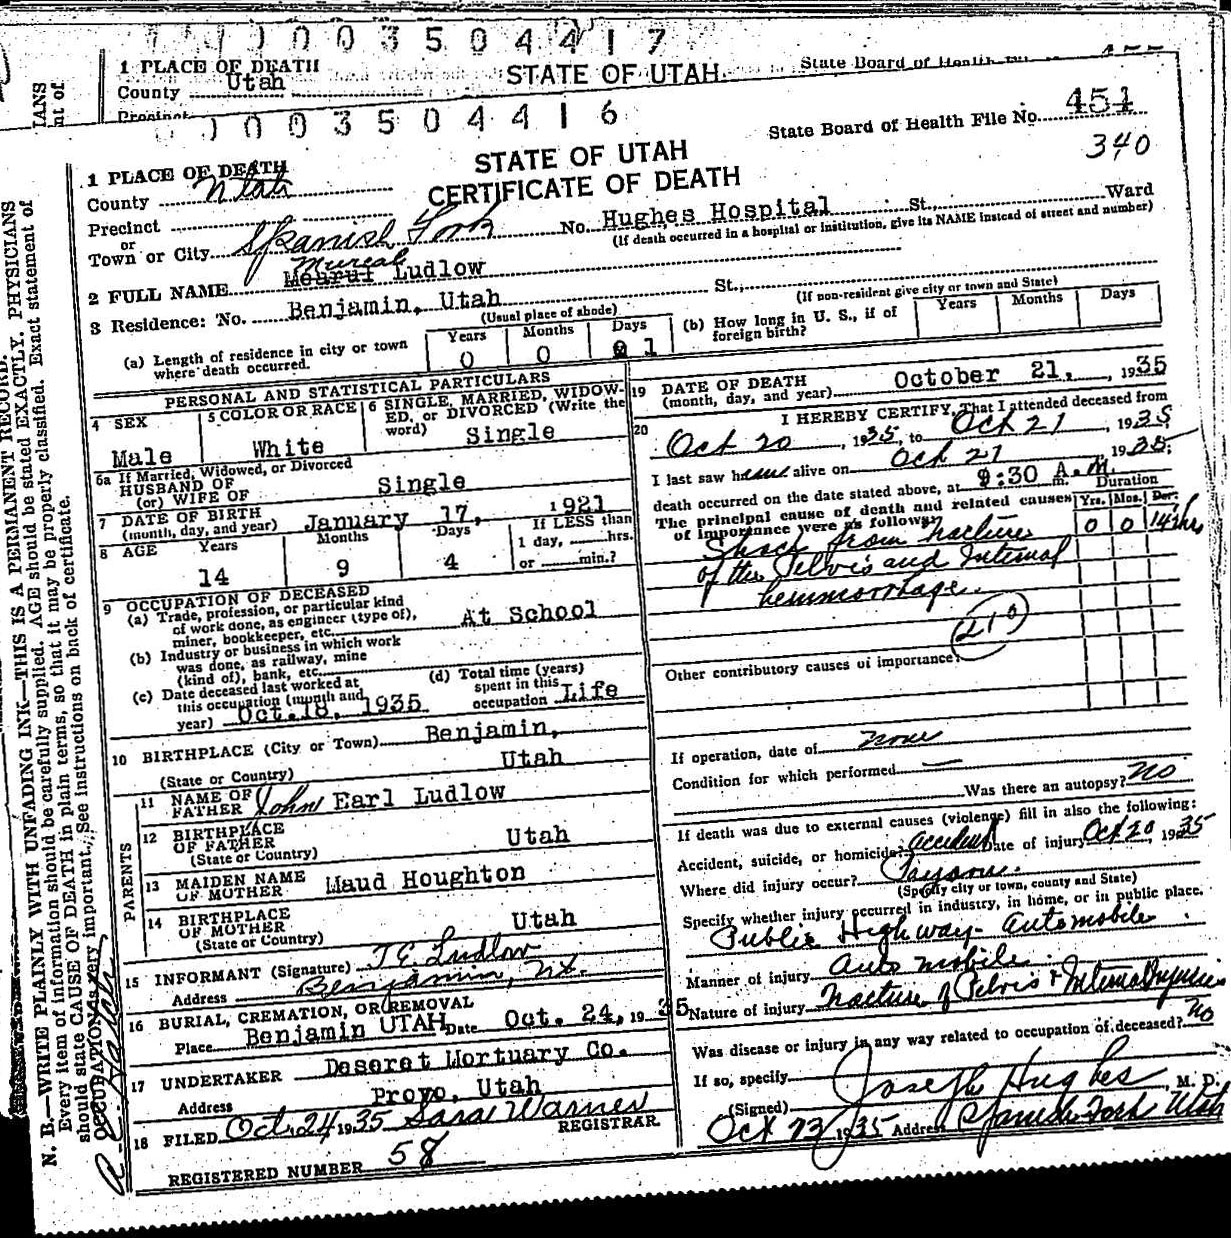 003504417
1 PLACE OF DEATH
STATE OF UTAH
State Board of Health
County Utah
Precinct
003504416
State Board of Health File No. 451
340
STATE OF UTAH
CERTIFICATE OF DEATH
1 PLACE OF DEATH
County Utah
Precinct
or
Town or City Spanish Fork No. Hughes Hospital St., Ward
(If death occurred in a hospital or institution, give its NAME instead of street and number)
Mureal
2 FULL NAME Ludlow
3 Residence: No. Benjamin, Utah St.,
(Usual place of abode) (If non-resident give city or town and State)
(a) Length of residence in city or town where death occurred. Years 0 Months 0 Days 1
(b) How long in U. S., if of foreign birth? Years Months Days
PERSONAL AND STATISTICAL PARTICULARS
4 SEX Male
5 COLOR OR RACE White
6 SINGLE, MARRIED, WIDOWED, or DIVORCED (Write the word) Single
6a If Married, Widowed, or Divorced
HUSBAND OF
(or) WIFE OF Single
7 DATE OF BIRTH
(month, day, and year) January 17, 1921
8 AGE Years 14 Months 9 Days 4
If LESS than
1 day, hrs.
or min.?
9 OCCUPATION OF DECEASED
(a) Trade, profession, or particular kind
of work done, as engineer (type of),
miner, bookkeeper, etc. At School
(b) Industry or business in which work
was done, as railway, mine
(kind of), bank, etc.
(c) Date deceased last worked at
this occupation (month and
year) Oct. 18, 1935
(d) Total time (years)
spent in this
occupation Life
10 BIRTHPLACE (City or Town) Benjamin,
(State or Country) Utah
PARENTS
11 NAME OF
FATHER John Earl Ludlow
12 BIRTHPLACE
OF FATHER Utah
(State or Country)
13 MAIDEN NAME
OF MOTHER Maud Houghton
14 BIRTHPLACE
OF MOTHER Utah
(State or Country)
15 INFORMANT (Signature) J E Ludlow
Address Benjamin, Ut.
16 BURIAL, CREMATION, OR REMOVAL
Place Benjamin UTAH Date Oct. 24, 1935
17 UNDERTAKER Deseret Mortuary Co.
Address Provo, Utah
18 FILED Oct. 24 1935 Sara Warner
REGISTRAR
REGISTERED NUMBER 58
19 DATE OF DEATH
(month, day, and year) October 21, 1935
20 I HEREBY CERTIFY, That I attended deceased from
Oct 20, 1935, to Oct 21, 1935
I last saw him alive on Oct 21, 1935;
death occurred on the date stated above, at 9:30 A.m.
The principal cause of death and related causes
of importance were as follows:
Duration
Yrs. Mos.
0 0 14 hrs
Shock from Fracture
of the Pelvis and Internal
hemmorrhage.
210
Other contributory causes of importance:
If operation, date of none
Condition for which performed —
Was there an autopsy? No
If death was due to external causes (violence) fill in also the following:
Accident, suicide, or homicide? accident Date of injury Oct 20, 1935
Where did injury occur? Payson.
(Specify city or town, county and State)
Specify whether injury occurred in industry, in home, or in public place.
Public Highway - Automobile
Manner of injury Auto mobile
Nature of injury Fracture of Pelvis + Internal Injuries
Was disease or injury in any way related to occupation of deceased? No
If so, specify
(Signed) Joseph Hughes, M. D.
Oct 23 1935 Address Spanish Fork Utah
N. B.—WRITE PLAINLY WITH UNFADING INK—THIS IS A PERMANENT RECORD.
Every item of information should be carefully supplied. AGE should be stated EXACTLY. PHYSICIANS
should state CAUSE OF DEATH in plain terms, so that it may be properly classified. Exact statement of
OCCUPATION is very important. See instructions on back of certificate.